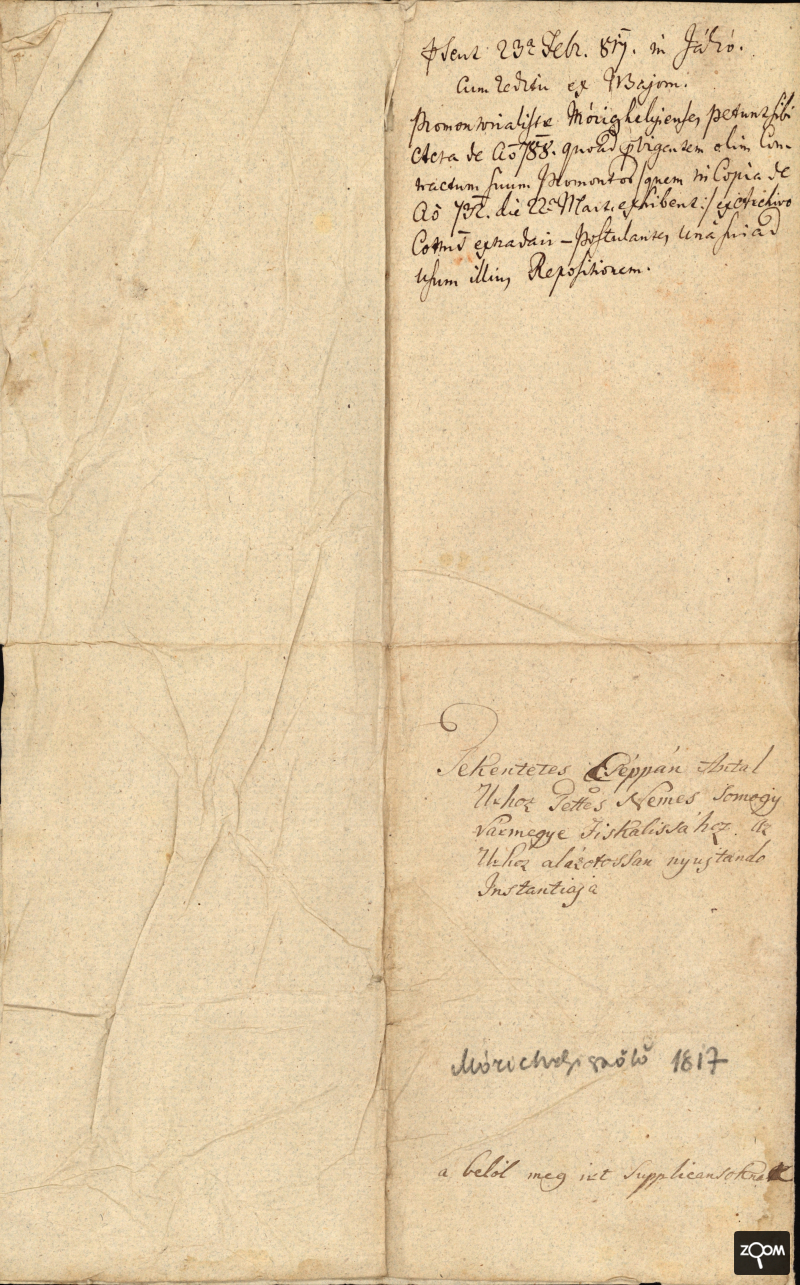 psent 23a Febr. 817. in Jádró.
Cum reditu ex Bajom.
Promontorialistæ Móriczhelyienses petunt sibi
Acta de Ao 788. quoad vigentem olim Con-
tractum suum Promontor /: quem in Copia de
Ao 732. die 22a Mart. exhibent :/ ex Archivo
Cottus extradari – postulantes una sui ad
usum illius Repositionem.
Tekéntetes Cséppán Antal
Urhoz Tettes Nemes Somogy
Vármegye Fiskalissához. Az
Urhoz alázotossan nyujtando
Instantiaja
Mórichelyi szőlő 1817
a belől meg irt Supplicansoknak
ZOOM